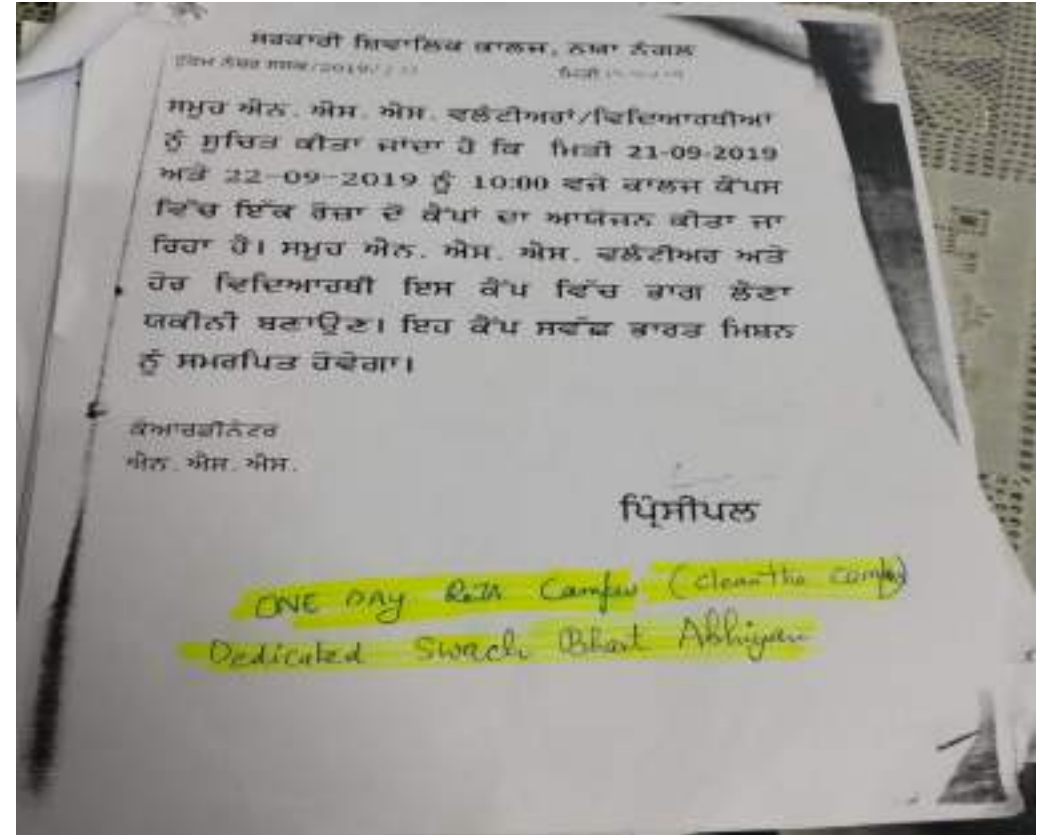 ਸਰਕਾਰੀ ਸ਼ਿਵਾਲਿਕ ਕਾਲਜ, ਨਯਾ ਨੰਗਲ
ਹੁਕਮ ਨੰਬਰ ਸਸਕ/2019/ ਮਿਤੀ
ਸਮੂਹ ਐਨ. ਐਸ. ਐਸ. ਵਲੰਟੀਅਰਾਂ/ਵਿਦਿਆਰਥੀਆਂ
ਨੂੰ ਸੂਚਿਤ ਕੀਤਾ ਜਾਂਦਾ ਹੈ ਕਿ ਮਿਤੀ 21-09-2019
ਅਤੇ 22-09-2019 ਨੂੰ 10:00 ਵਜੇ ਕਾਲਜ ਕੈਂਪਸ
ਵਿੱਚ ਇੱਕ ਰੋਜ਼ਾ ਦੋ ਕੈਂਪਾਂ ਦਾ ਆਯੋਜਨ ਕੀਤਾ ਜਾ
ਰਿਹਾ ਹੈ। ਸਮੂਹ ਐਨ. ਐਸ. ਐਸ. ਵਲੰਟੀਅਰ ਅਤੇ
ਹੋਰ ਵਿਦਿਆਰਥੀ ਇਸ ਕੈਂਪ ਵਿੱਚ ਭਾਗ ਲੈਣਾ
ਯਕੀਨੀ ਬਣਾਉਣ। ਇਹ ਕੈਂਪ ਸਵੱਛ ਭਾਰਤ ਮਿਸ਼ਨ
ਨੂੰ ਸਮਰਪਿਤ ਹੋਵੇਗਾ।
ਕੋਆਰਡੀਨੇਟਰ
ਐਨ. ਐਸ. ਐਸ.
ਪ੍ਰਿੰਸੀਪਲ
ONE DAY (clean the
Dedicated Swach Bhart Abhiyan